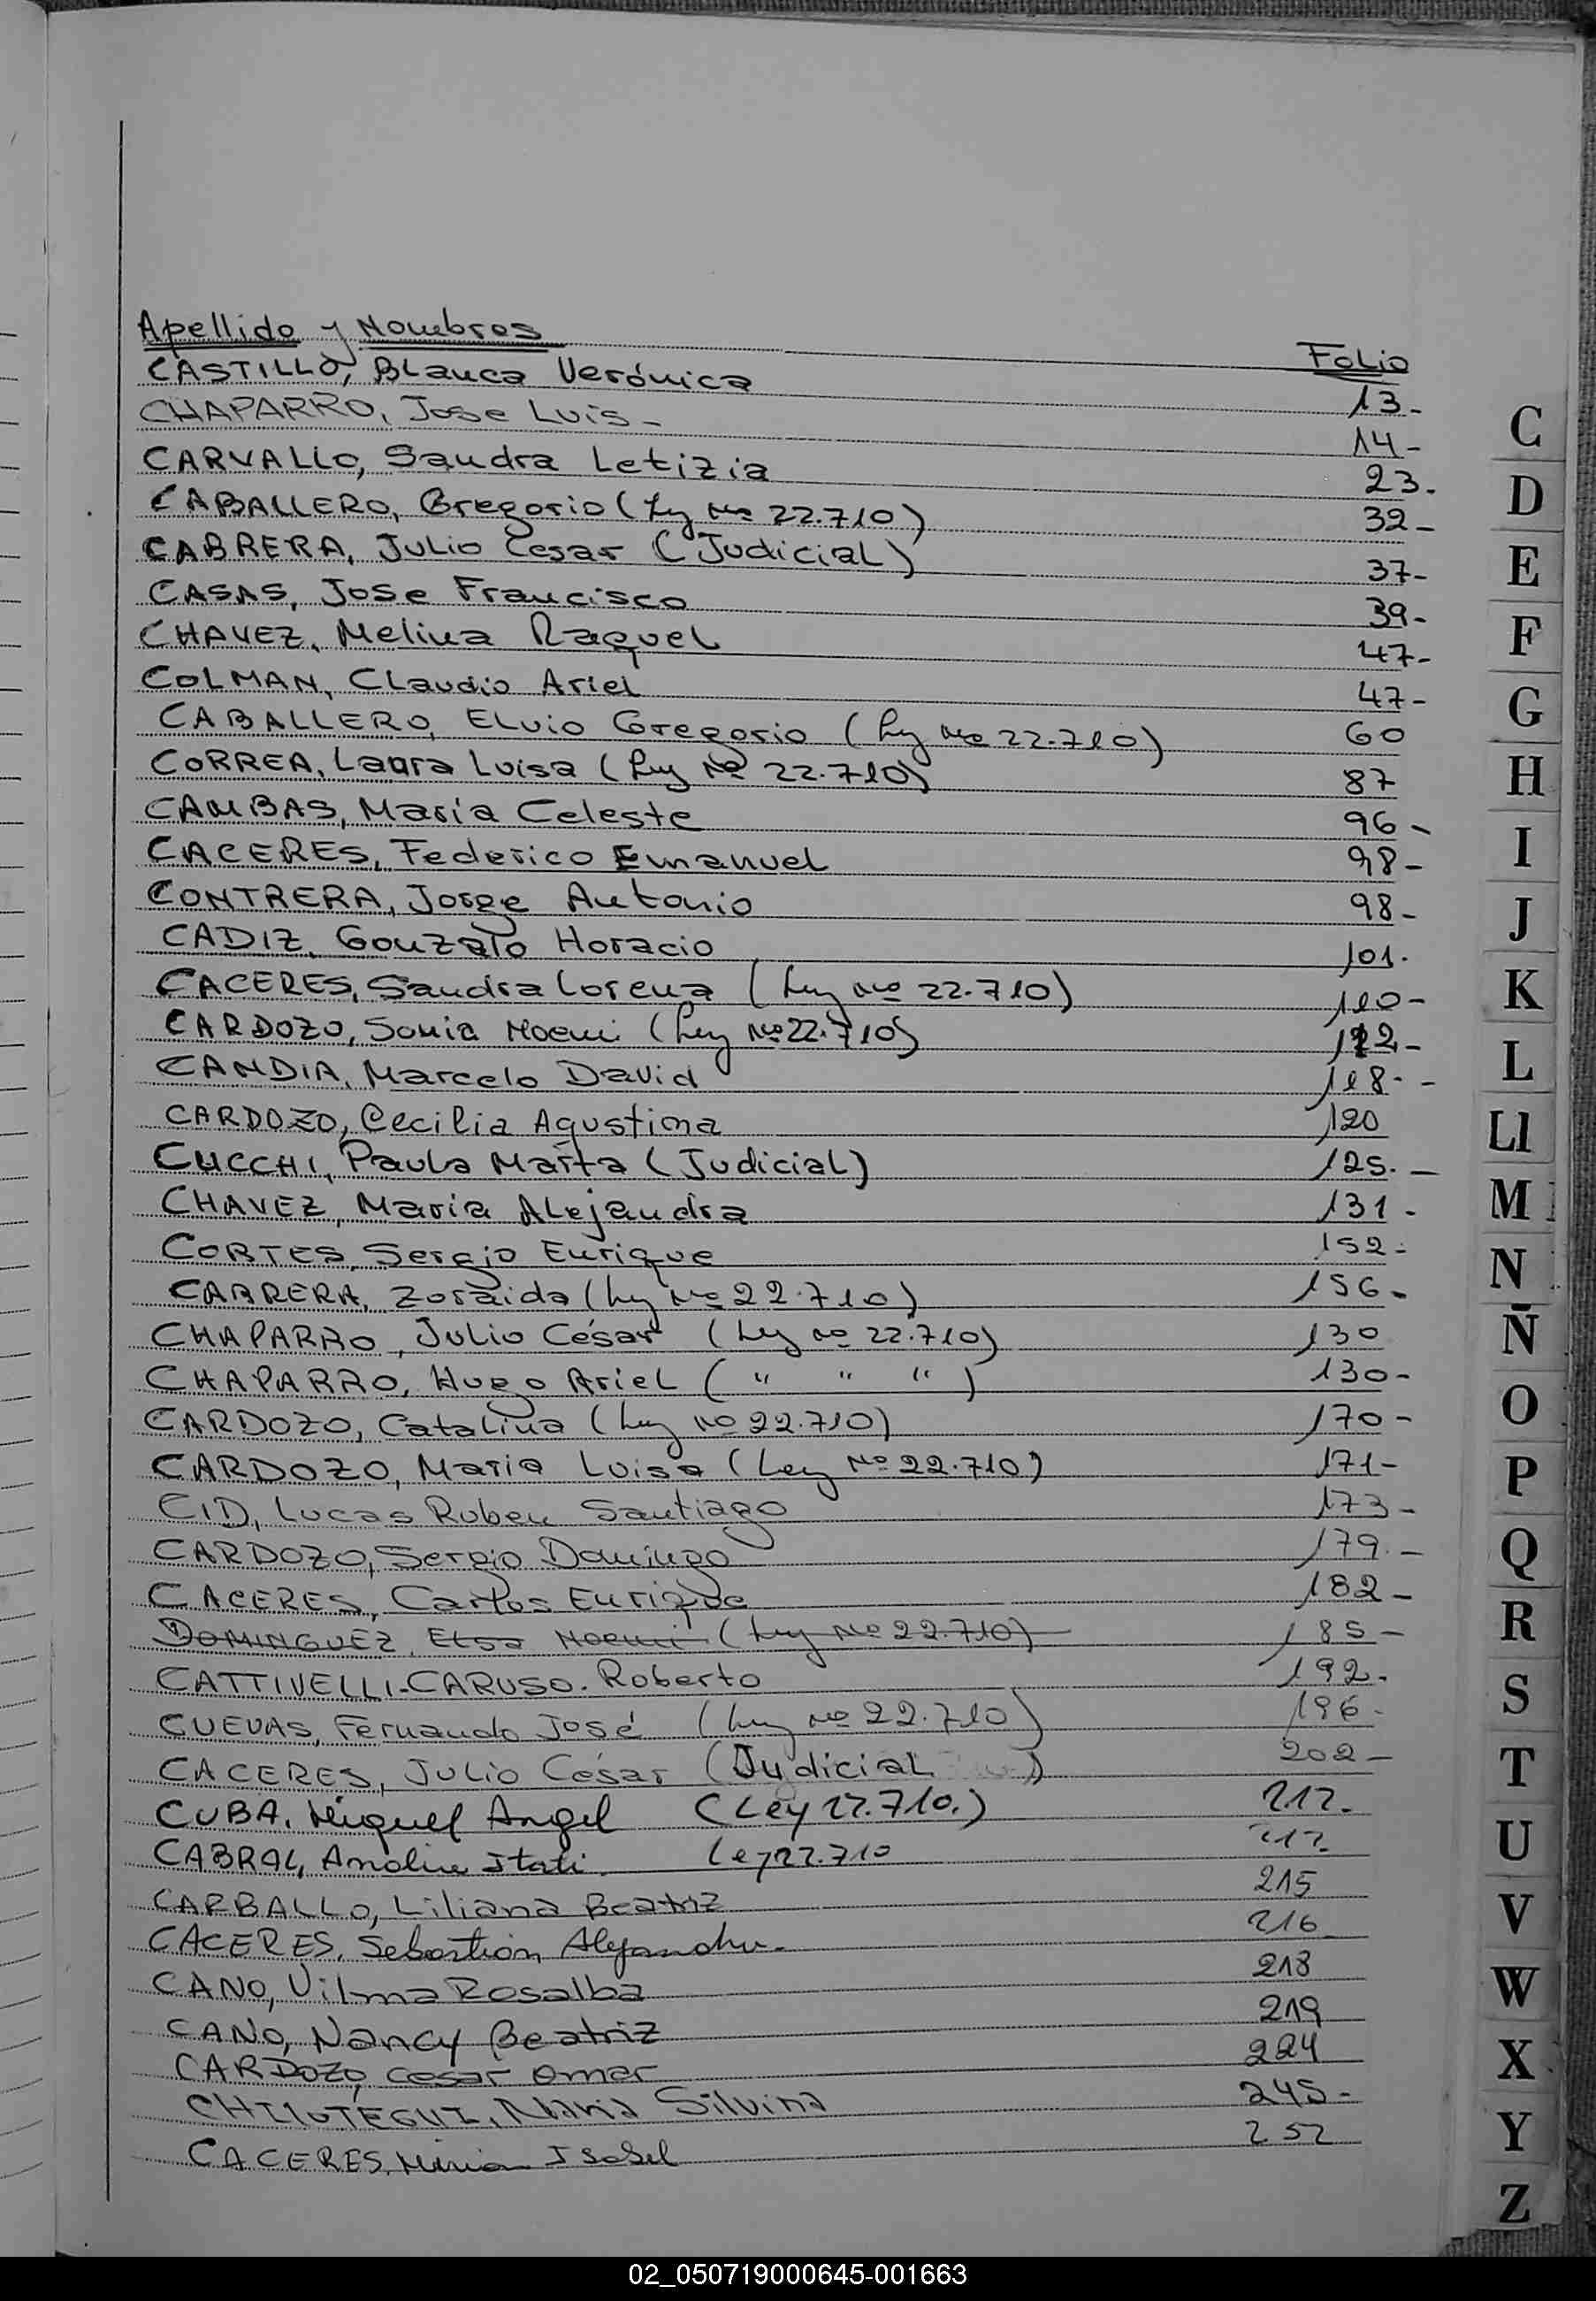 Apellido y Nombres Folio
CASTILLO, Blanca Verónica 13-
CHAPARRO, Jose Luis- 14-
CARVALLO, Sandra Letizia 23-
CABALLERO, Gregorio (Ley Nº 22.710) 32-
CABRERA, Julio Cesar (Judicial) 37-
CASAS, Jose Francisco 39-
CHAVEZ, Melina Raquel 47-
COLMAN, Claudio Ariel 47-
CABALLERO, Elvio Gregorio (Ley Nº 22.710) 60
CORREA, Laura Luisa (Ley Nº 22.710) 87
CAMBAS, María Celeste 96-
CACERES, Federico Emanuel 98-
CONTRERA, Jorge Antonio 98-
CADIZ, Gonzalo Horacio 101.
CACERES, Sandra Lorena (Ley Nº 22.710) 110-
CARDOZO, Sonia Noemi (Ley Nº 22.710) 112-
CANDIA, Marcelo David 118--
CARDOZO, Cecilia Agustina 120
CUCCHI, Paula Marta (Judicial) 125.-
CHAVEZ, Maria Alejandra 131-
CORTES, Sergio Enrique 152-
CABRERA, Zoraida (Ley Nº 22.710) 156-
CHAPARRO, Julio César (Ley Nº 22.710) 130
CHAPARRO, Hugo Ariel ( " " " ) 130-
CARDOZO, Catalina (Ley Nº 22.710) 170-
CARDOZO, Maria Luisa (Ley Nº 22.710) 171-
CID, Lucas Ruben Santiago 173-
CARDOZO, Sergio Domingo 179.-
CACERES, Carlos Enrique 182-
DOMINGUEZ, Elsa Noemi (Ley Nº 22.710) 185-
CATTIVELLI-CARUSO. Roberto 192-
CUEVAS, Fernando José (Ley Nº 22.710) 196-
CACERES, Julio César (Judicial) 202-
CUBA, Miguel Angel (Ley 22.710.) 212.
CABRAL, Analia Itati Ley 22.710 212
CARBALLO, Liliana Beatriz 215
CACERES, Sebastián Alejandro. 216
CANO, Vilma Rosalba 218
CANO, Nancy Beatriz 219
CARDOZO, Cesar Omar 224
Maria Silvina 245-
CACERES, Miriam Isabel 252
C
D
E
F
G
H
I
J
K
L
Ll
M
N
Ñ
O
P
Q
R
S
T
U
V
W
X
Y
Z
02_050719000645-001663